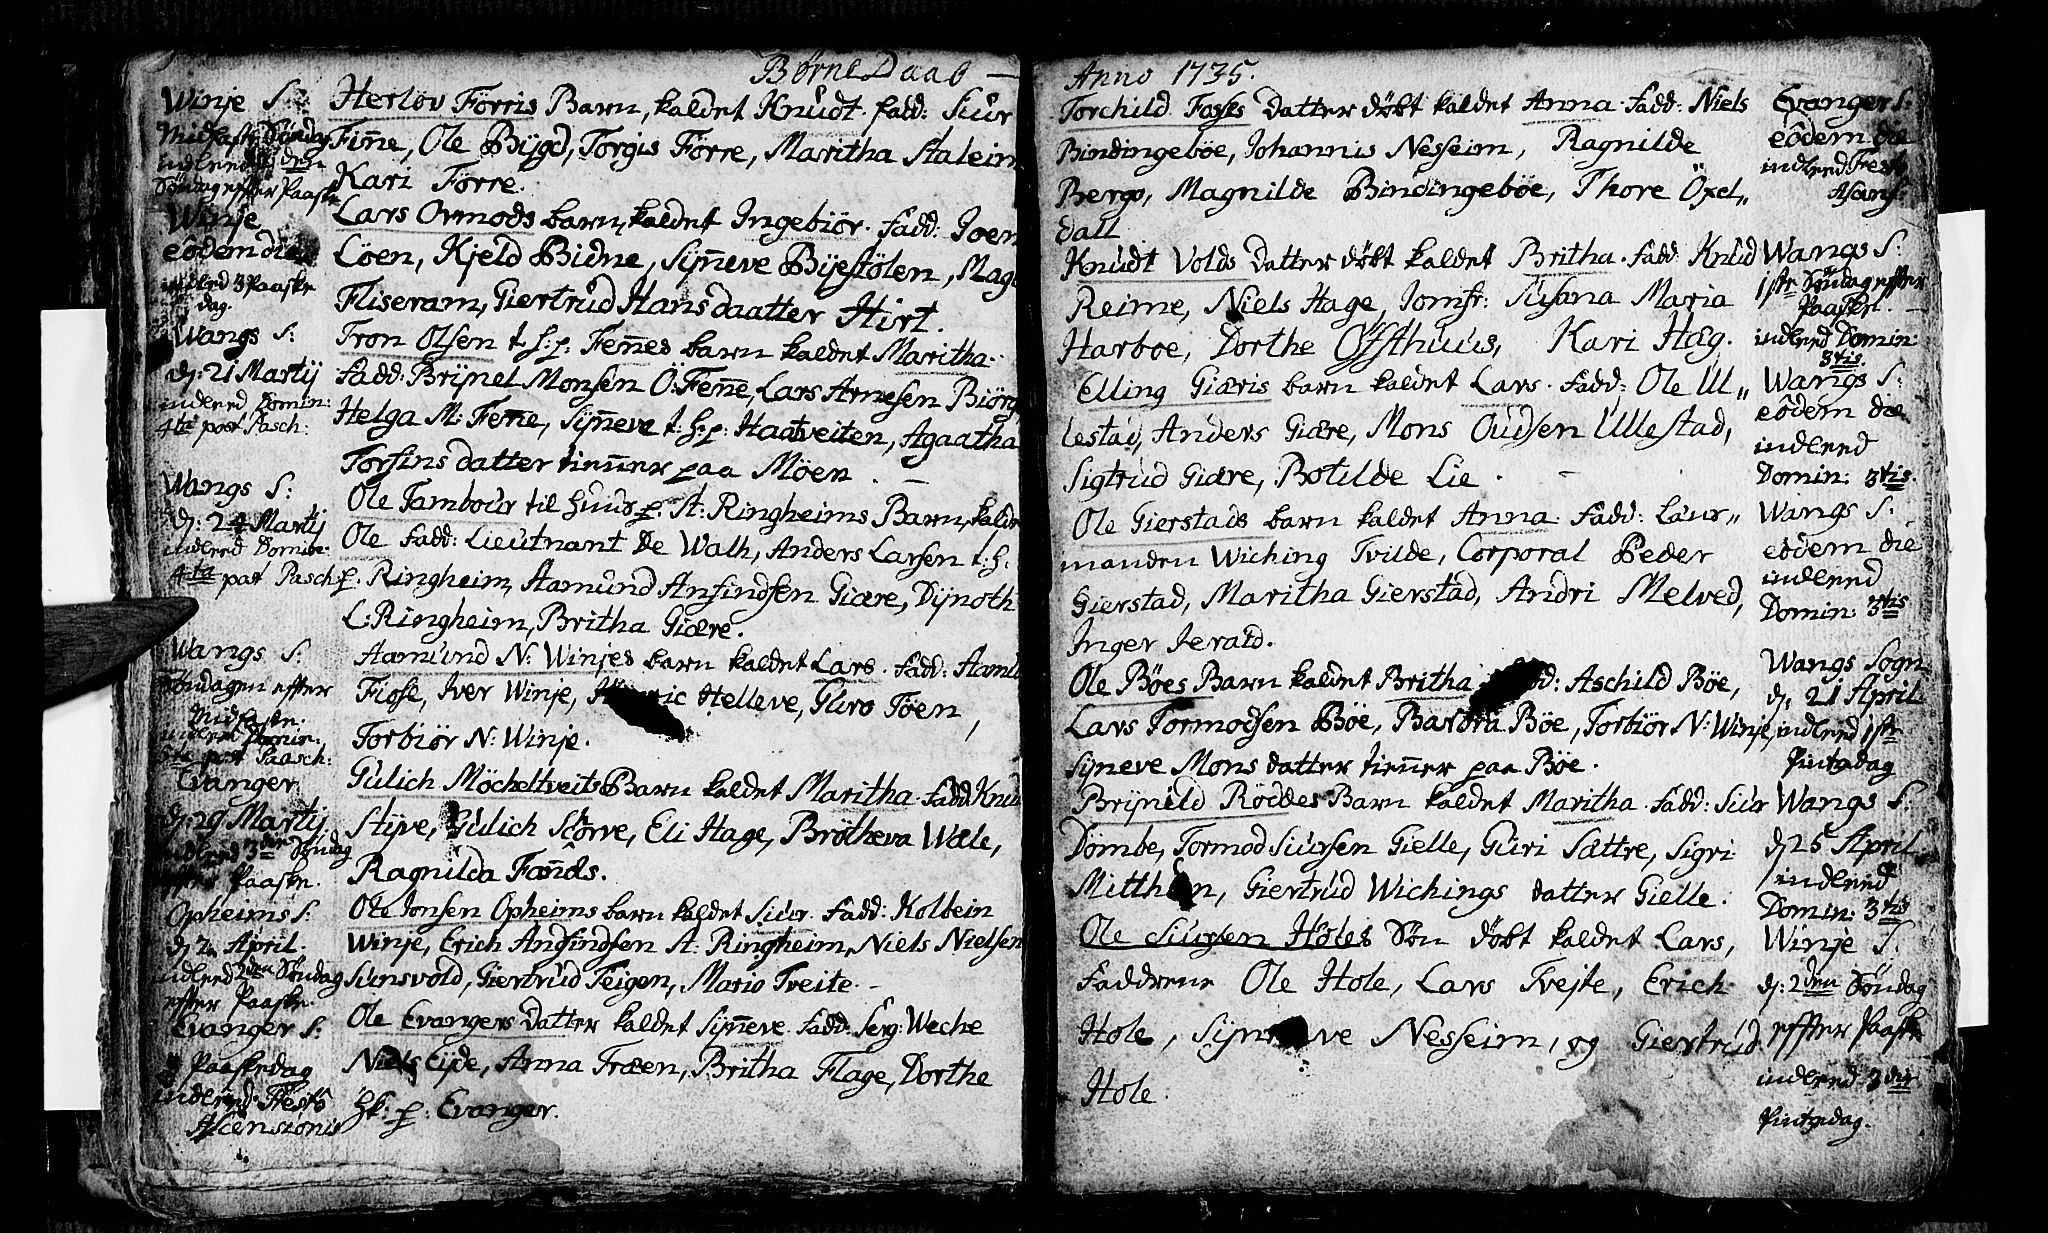 Børne Daab —
Winje S:
Midfaste Søndag
indleed: den
Søndag effter Paaske
Herlöv Förris Barn, kaldet Knudt. fadd: Siur
Finne, Ole Bijgd, Torgis Förre, Maritha Staleim
Kari Förre.
Winje
eôdem die
indleed 3 Paaske
dag.
Lars Ormods barn, kaldet Ingebiör. fadd: Joen
Löen, Kjeld Bidne, Sijñeve Bijestölen, Mag
Fliseram, Giertrud Hansdaatter Hirt.
Wangs S:
d: 21 Martij
indleed Domin:
4te post Pasch:
Tron Olsen t. H: p: Feñes barn kaldet Maritha.
fadd: Brijnel Monsen Ö: Feñe, Lars Arnesen Biörg
Helga M: Feñe, Sijñeve t: H: p: Haatveiten, Agaatha
Torfins datter tieñer paa Möen. —
Wangs S:
d: 24 Martij
indleed Domin:
4ta post Pasch:
Ole Tambour til Huus p. St: Ringheims Barn, kaldet
Ole fadd: Lieutnant De Walh, Anders Larsen t: H.
p. Ringheim, Aamund Anfindsen Giære, Dijnoth
L: Ringheim, Britha Giære.
Wangs S:
Söndagen effter
Midfasten.
indleed Domin:
5te post Paasch:
Aamund N: Winjes barn kaldet Lars. fadd: Aamu
Fiose, Iver Winje, Helleve, Guro Töen,
Torbiör N: Winje.
Evanger
d: 29 Martij
indleed 3die Söndag
effter Paaske.
Gulich Möcheltveits Barn kaldet Maritha. fadd Knud
Stijve, Gulich Störve, Eli Hage, Brötheva Wæle,
Ragnilda Fañds.
Opheims S:
d 2 April.
indleed 2den Söndag
effter Paaske
Ole Jonsen Opheims barn kaldet Siur. fadd: Kolbein
Winje, Erich Anfindsen St: Ringheim, Niels Nielsen
Sunsvold, Giertrud Teigen, Mario Tveite. —
Evanger S:
3 Paaskedag
indleed Festô
Ascensionis
Ole Evangers datter kaldet Sijñeve. fadd: Serg: Weche
Niels Eijde, Anna Træen, Britha Flage, Dorthe
Hk: p: Evanger.
Anno 1735.
Torchild Fosses datter döbt kaldet Anna. fadd: Niels
Bindingeböe, Johannis Nesseim, Ragnilde
Bergo, Magnilde Bindingeböe, Thore Öxel„
dall
Evanger S:
eôdem die
indleed Festo
Asens:
Knudt Volds datter döbt kaldet Britha. fadd Knud
Reime, Niels Hage, Jomfr: Susana Maria
Harboe, Dorthe Öfsthuus, Kari Hæg.
Wangs S:
1ste Söndag effter
Paaske. —
indleed Domin:
3tis.
Elling Giæris barn kaldet Lars. fadd: Ole Ul„
lestad, Anders Giære, Mons Oudsen Ullestad,
Sigtrud Giære, Botilde Lie.
Wangs S:
eôdem die
indleed
Domin: 3tis.
Ole Gierstads barn kaldet Anna. fadd: Laur„
manden Wiching Tvilde, Corporal Peder
Gierstad, Maritha Gierstad, Andri Melved,
Inger Jerald.
Wangs S:
eôdem die
indleed
Domin: 3tis
Ole Böes Barn kaldet Britha : Aschild Böe,
Lars Tormodsen Böe, Barbra Böe, Torbiör N: Winje,
Sijneve Mons datter tieñer paa Böe.
Wangs Sogn
d: 21 April
indleed 1ste
Pintzdag
Brijnild Röddes Barn kaldet Maritha. fadd: Siur
Dömbe, Tormod Siursen Gielle, Guri Sættre, Sigri
Mitthun, Giertrud Wichings datter Gielle.
Wangs S:
d 25 April
indleed
Domin: 3tis
Ole Siursen Höles Sön döbt kaldet Lars,
Fadderne Ole Hole, Lars Tvejte, Erich
Hole, Sijneve Nesseim, og Giertrud
Hole.
Winje S:
d: 2den Söndag
effter Paaske
indleed 3die
Pintzdag.